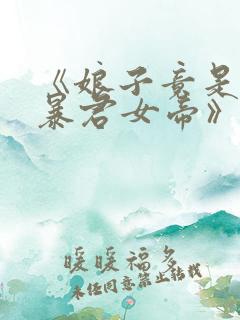 《娘子竟是
暴君女帝》
暖暖福多
未经同意禁止转载